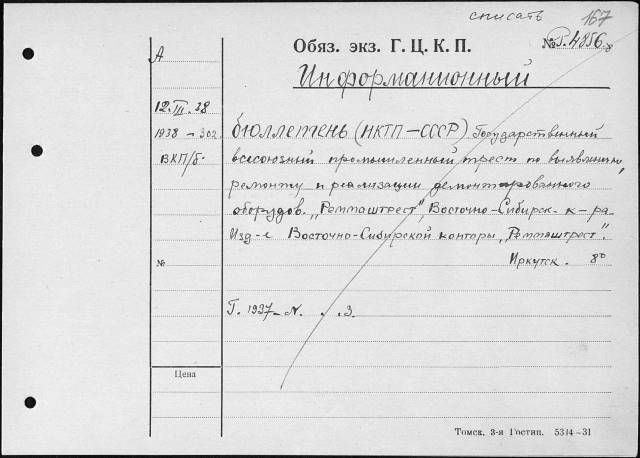 списать 167
Обяз. экз. Г. Ц. К. П. № Р.4856
А
Информационный
12.III.38
1938 — 302
ВКП/б.
бюллетень (НКТП — СССР) Государственный
всесоюзный промышленный трест по выявлению,
ремонту и реализации демонтированного
оборудов. „Реммаштрест", Восточно-Сибирск. к-ра
Изд-е Восточно-Сибирской конторы „Реммаштрест".
№ Иркутск. 8°
Г. 1937 — N. . . 3.
Цена
Томск. 3-я Гостип. 5314—31